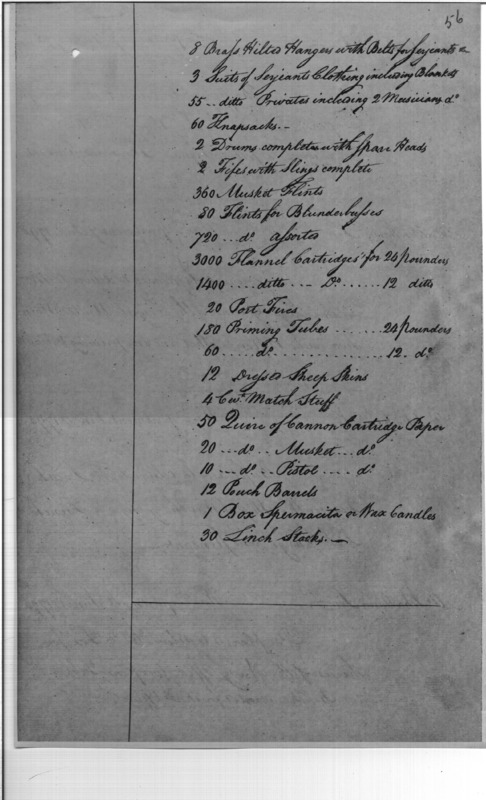 56
8 Brass Hilted Hangers with Belts for Serjeants
3 Suits of Serjeants Clothing including Blankets
55 .. ditto Privates including 2 Musicians do
60 Knapsacks. -
2 Drums complete with spare Heads
2 Fifes with Slings complete
360 Musket Flints
80 Flints for Blunderbusses
720 ... do assorted
3000 Flannel Cartridges for 24 pounders
1400 .... ditto ... Do ...... 12 ditto
20 Port Fires
180 Priming Tubes ...... 24 pounders
60 ..... do ............... 12. do
12 Dressed Sheep Skins
4 Cwt Match Stuff
50 Quire of Cannon Cartridge Paper
20 ... do .. Musket ... do
10 ... do .. Pistol .... do
12 Pouch Barrels
1 Box Spermacita or Wax Candles
30 Linch Stocks. —